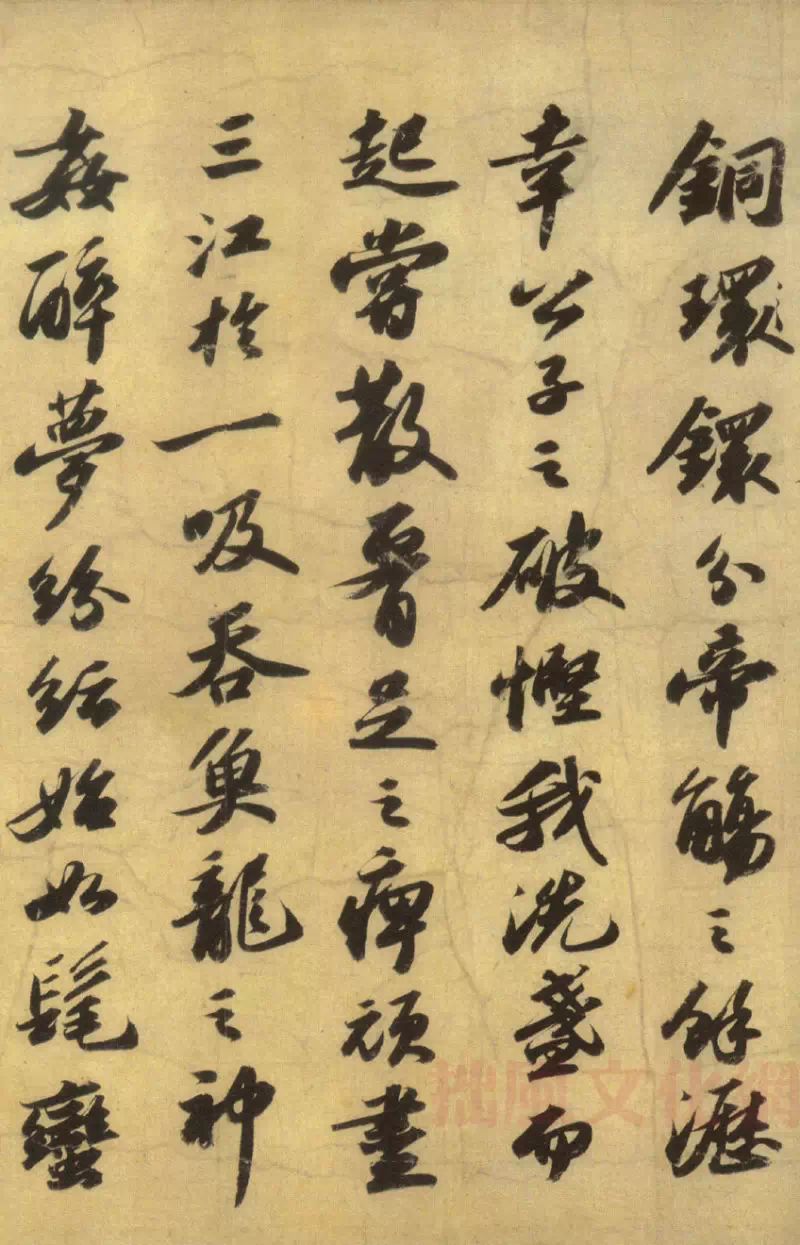 銅環鐶分帝觴之餘瀝
幸公子之破慳我洗盞而
起嘗散腰足之痺頑盡
三江於一吸吞魚龍之神
姦醉夢紛紜始如髦蠻
拙風文化網